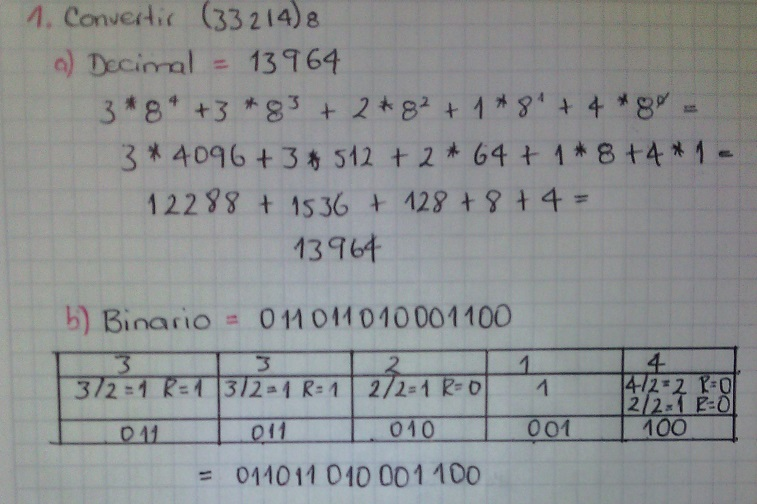 1. Convertir (33214)8
a) Decimal = 13964
3*8⁴ + 3*8³ + 2*8² + 1*8¹ + 4*8⁰ =
3*4096 + 3*512 + 2*64 + 1*8 + 4*1 =
12288 + 1536 + 128 + 8 + 4 =
13964
b) Binario = 011011010001100
3 3 2 1 4
3/2=1 R=1 3/2=1 R=1 2/2=1 R=0 1 4/2=2 R=0
2/2=1 R=0
011 011 010 001 100
= 011011 010 001 100